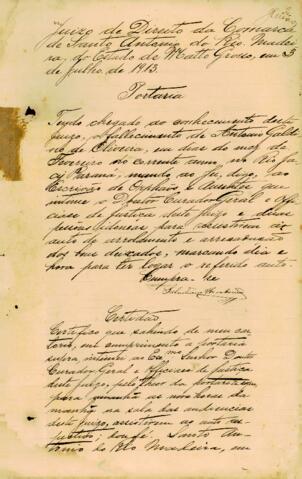 Juizo de Direito da Comarca
de Santo Antonio do Rio Madei-
ra, do Estado de Matto Grosso, em 5
de Julho de 1913.
Portaria
Tendo chegado ao conhecimento deste
Juizo, o fallecimento de Antonio Galdi-
no de Oliveira, em dias do mez de
Fevereiro do corrente anno, no Rio Ja-
cy Paraná, mando ao Ju, digo, ao
Escrivão de Orphãos e Ausentes que
intime o Doutor Curador Geral e Offi-
ciaes de Justiça deste Juizo e duas
pessoas idoneas para assistirem ao
auto de arrolamento e arrecadação
dos bens deixados, marcando dia e
hora para ter logar o referido auto.
Cumpra-se
Certidão
Certifico que sahindo de meu car-
torio, em cumprimento a portaria
supra, intimei ao Exmo Senhor Doutor
Curador Geral e Officiaes de Justiça
deste Juizo, pelo theor da portaria
para amanhã as nove horas da
manhã na sala das audiencias
deste Juizo, assistirem ao auto re-
ferido; dou fé. Santo An-
tonio do Rio Madeira, em